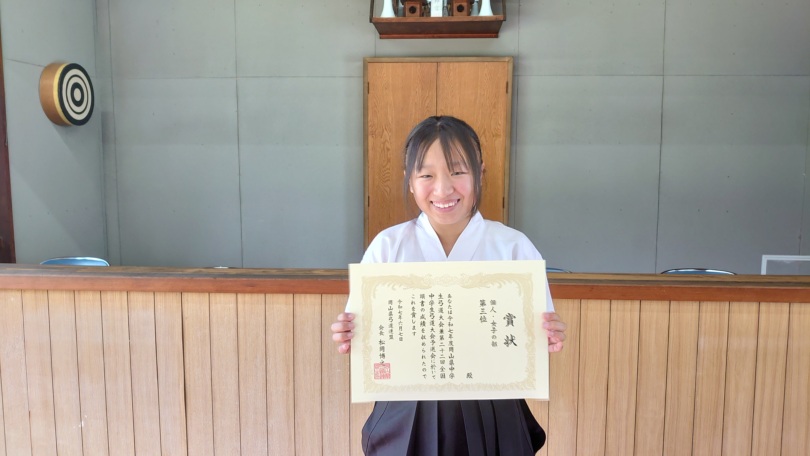 賞状
個人・女子の部
第三位
殿
あなたは令和七年度岡山県中学
生弓道大会兼第二十二回全国
中学生弓道大会予選会に於いて
頭書の成績を収められたので
これを賞します
令和七年六月七日
岡山県弓道連盟
会長 松岡博